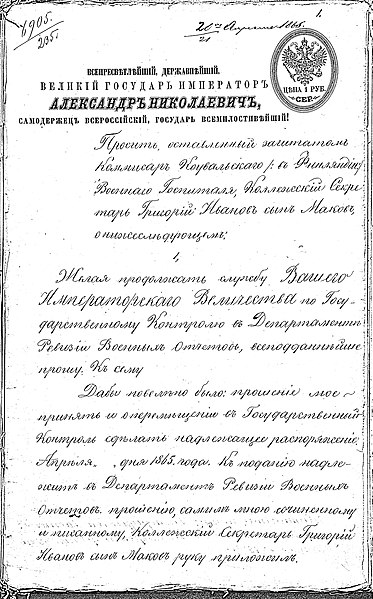 1905.
235.
1.
ВСЕПРЕСВѢТЛѢЙШІЙ, ДЕРЖАВНѢЙШІЙ,
ВЕЛИКІЙ ГОСУДАРЬ ИМПЕРАТОРЪ
АЛЕКСАНДРЪ НИКОЛАЕВИЧЪ,
САМОДЕРЖЕЦЪ ВСЕРОССІЙСКІЙ, ГОСУДАРЬ ВСЕМИЛОСТИВѢЙШІЙ!
ЦѢНА 1 РУБ.
СЕР.
Проситъ, оставленный заштатомъ
Коммисаръ /: въ Финляндіи
Военнаго Госпиталя, Коллежскій Секре-
тарь Григорій Ивановъ сынъ Маковъ,
о нижеслѣдующемъ:
1,
Желая продолжать службу Вашего
Императорскаго Величества по Госу-
дарственному Контролю въ Департаментѣ
Ревизіи Военныхъ Отчетовъ, всеподданнѣйше
прошу. Къ сему
Дабы повелѣно было: прошеніе мое
принять и о перемѣщеніи въ Государственный
Контроль сдѣлать надлежащее распоряженіе.
Апрѣля „ дня 1865 года. Къ поданію надле-
житъ въ Департаментъ Ревизіи Военныхъ
Отчетовъ. прошеніе, самимъ мною сочиненному
и писанному, Коллежскій Секретарь Григорій
Ивановъ сынъ Маковъ руку приложилъ.